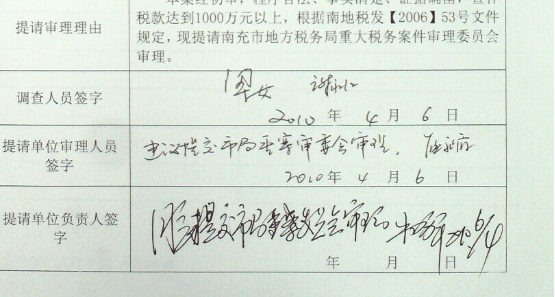 本案经初审，程序合法、事实清楚、证据确凿，查补
税款达到1000万元以上，根据南地税发【2006】53号文件
规定，现提请南充市地方税务局重大税务案件审理委员会
审理。
提请审理理由
调查人员签字
2010 年 4 月 6 日
提请单位审理人员
签字
建议提交市局重案审委会审理。
2010 年 4 月 6 日
提请单位负责人签
字
同意提交市局重案委员会审理
年 月 日